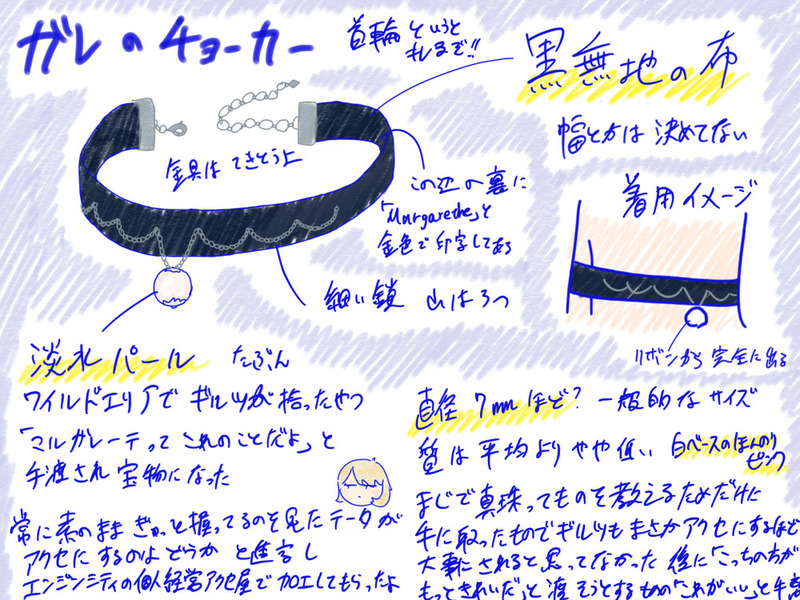 ガレのチョーカー
首輪というと
キレるぞ!!
黒無地の布
幅とかは決めてない
金具はてきとうよ
この辺の裏に
「Margarethe」と
金色で印字してある
着用イメージ
細い鎖 山は5つ
リボンから完全に出る
淡水パール たぶん
ワイルドエリアでギルツが拾ったやつ
「マルガレーテってこれのことだよ」と
手渡され宝物になった
常に素のままぎゅっと握ってるのを見たデータが
アクセにするのはどうかと進言し
エンジンシティの個人経営アクセ屋で加工してもらったよ
直径7mmほど? 一般的なサイズ
質は平均よりやや低い 白ベースのほんのり
ピンク
まじで真珠ってものを教えるためだけに
手に取ったものでギルツもまさかアクセにするほど
大事にされると思ってなかった 後に「こっちの方が
もっときれいだ」と渡そうとするもの「これがいい」と